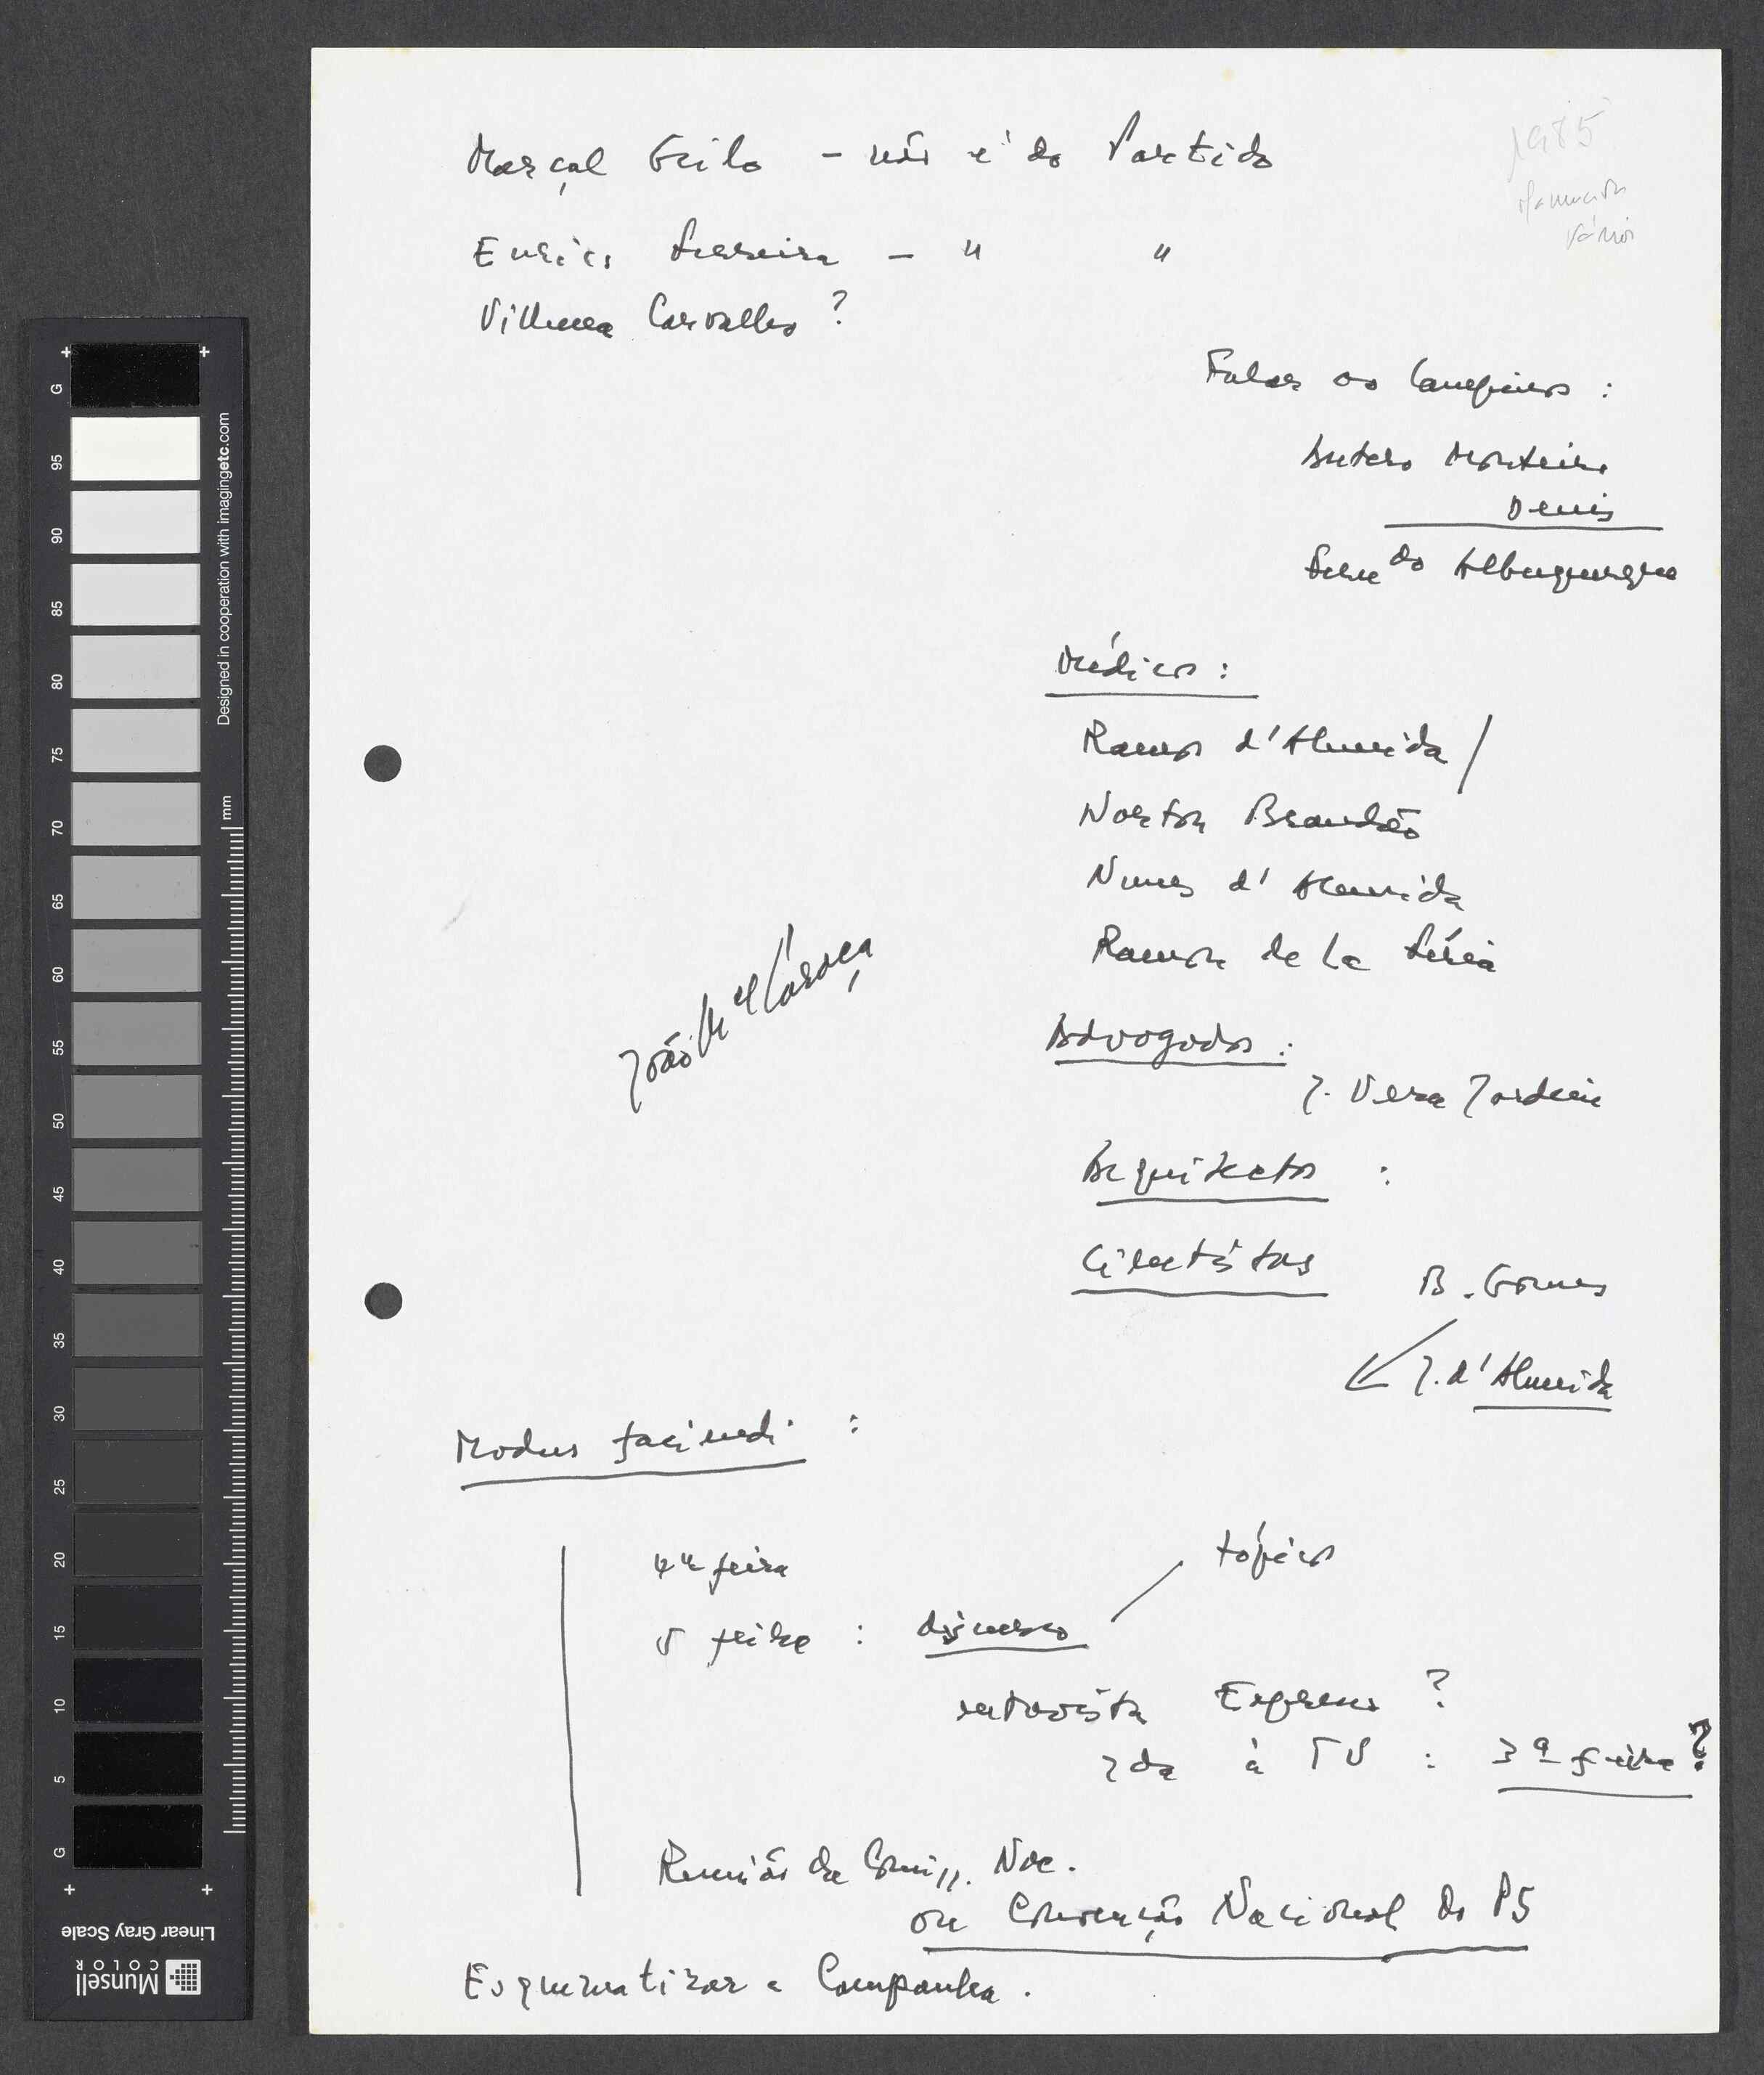 Marçal Grilo – não é do Partido
1985
manuscritos
vários
Eurico Ferreira – " "
Villera Carvalho ?
Falar ao Campinos :
Antero Monteiro
Denis
Ferndo Albuquerque
Médicos :
Ramos d'Almeida /
Norton Brandão
Nunes d'Almeida
Ramon de la Féria
João Caraça
Advogados :
J. Vera Jardim
Arquitectos :
Cientistas B. Gomes
J. d'Almeida
Modus faciendi :
4ª feira
tópicos
5 feira : discurso
entrevista Expresso ?
ida à TV : 3ª feira ?
Reunião da Comiss. Nac.
ou Convenção Nacional do PS
Esquematizar a Campanha .
G 95 90 85 80 75 70 65 60 55 50 45 40 35 30 25 20 15 10 5 G
mm
Designed in cooperation with imagingetc.com
Linear Gray Scale
Munsell
COLOR